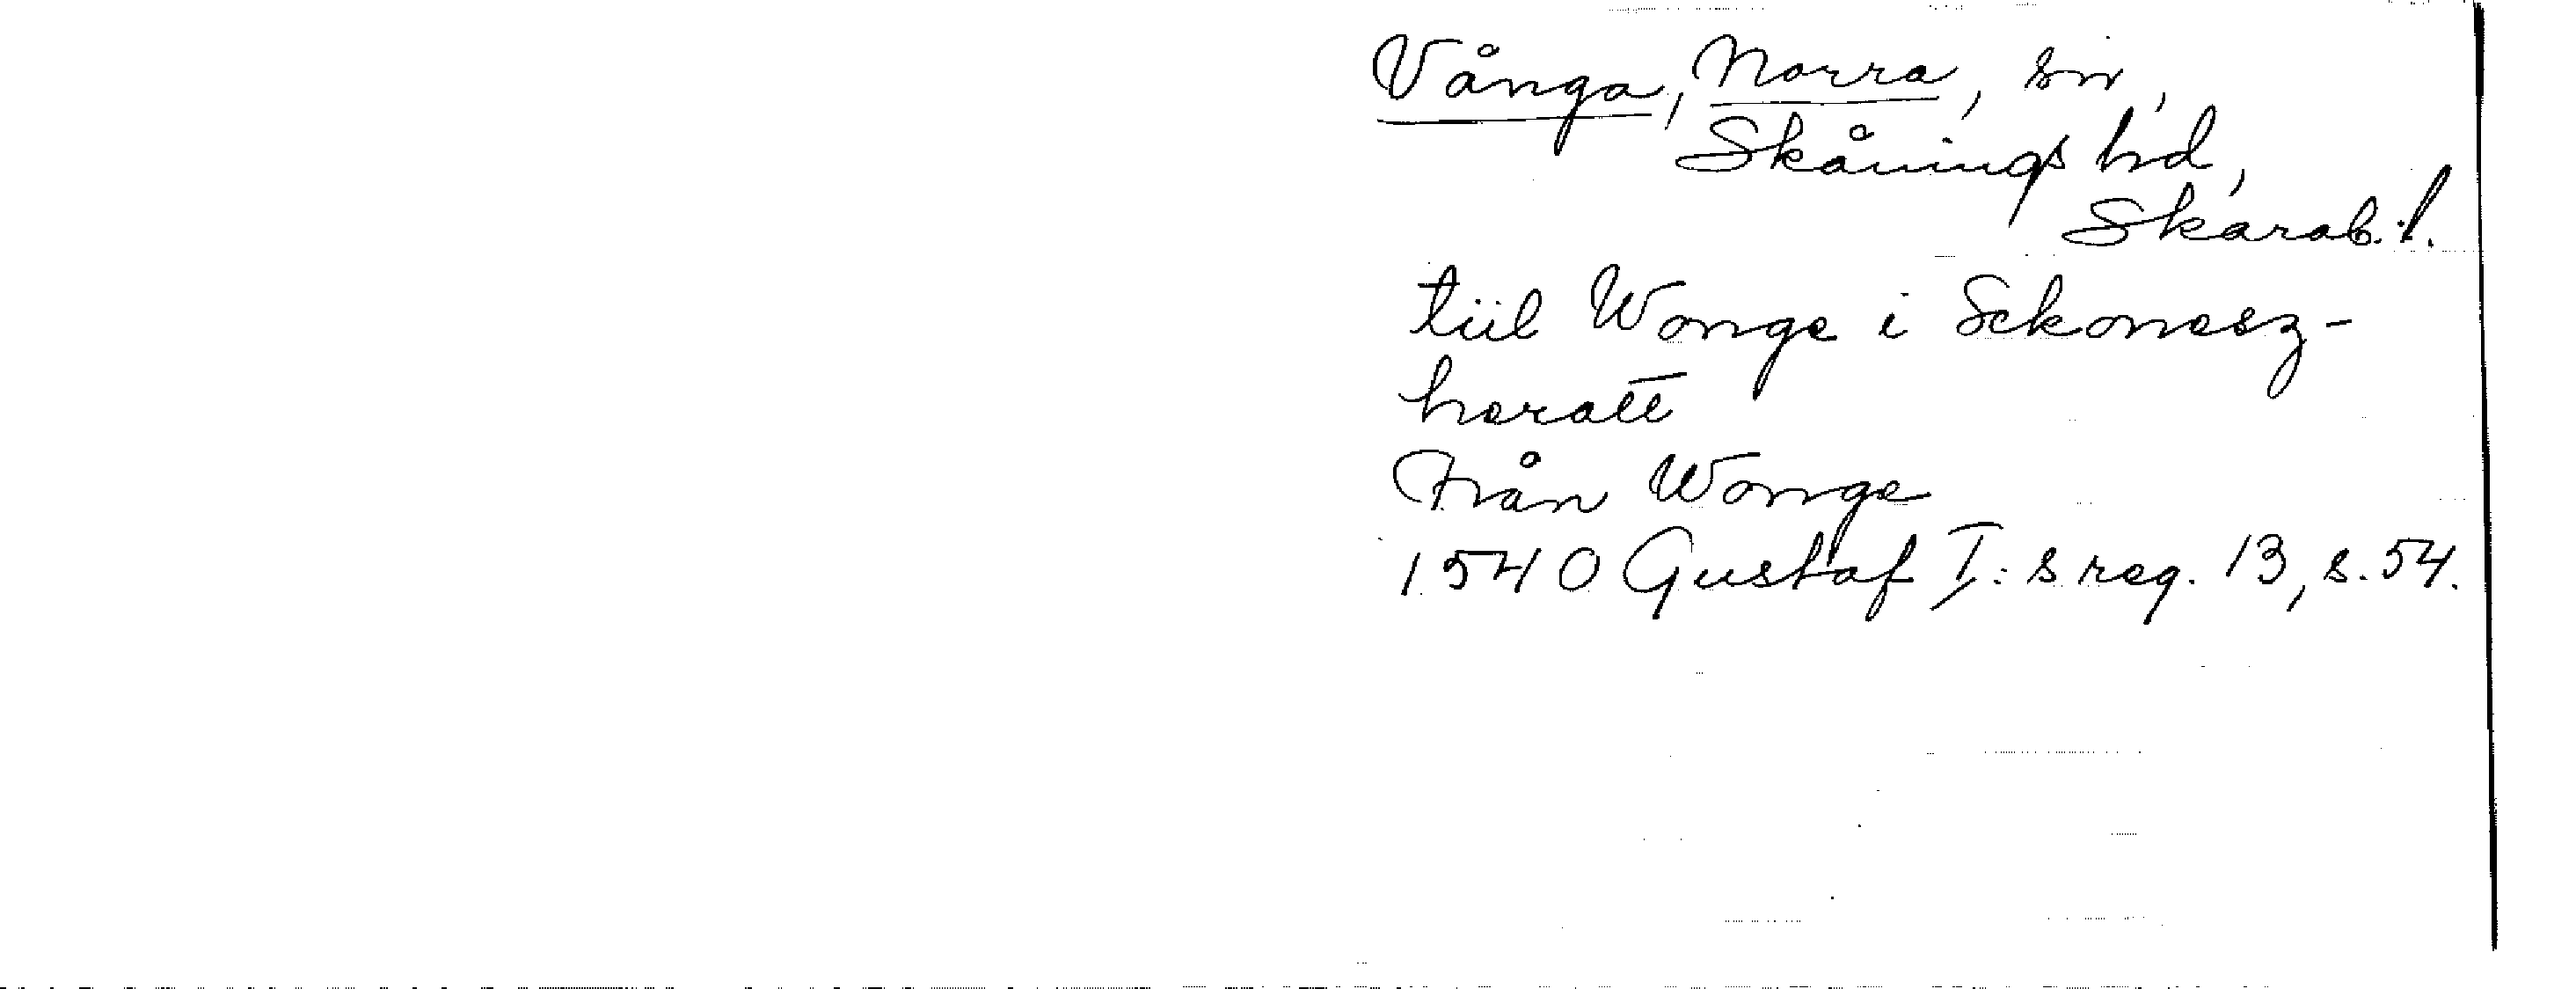 Vånga, Norra, sn,
Skånings hd,
Skarab. l.
tiil Wonge i Sckonesz-
heratt
Från Wonge
1540 Gustaf I:s reg. 13, s. 54.